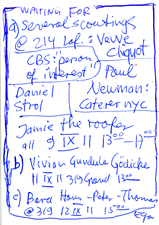 WAITING FOR
a) Several scoutings
@ 214 Laf.: Veuve
Clicquot
CBS: "person
of interest" Paul
Daniel
Strol
Newman:
Caterer nyc
Jamie the roofer
all 9 IX 11 13⁰⁰-17⁰⁰
b) Vivian Gundula Gödicke
11 IX 11 319 Grand 13⁰⁰
c) Hans-Peter-Thomas
@ 319 12 IX 11 15⁰⁰